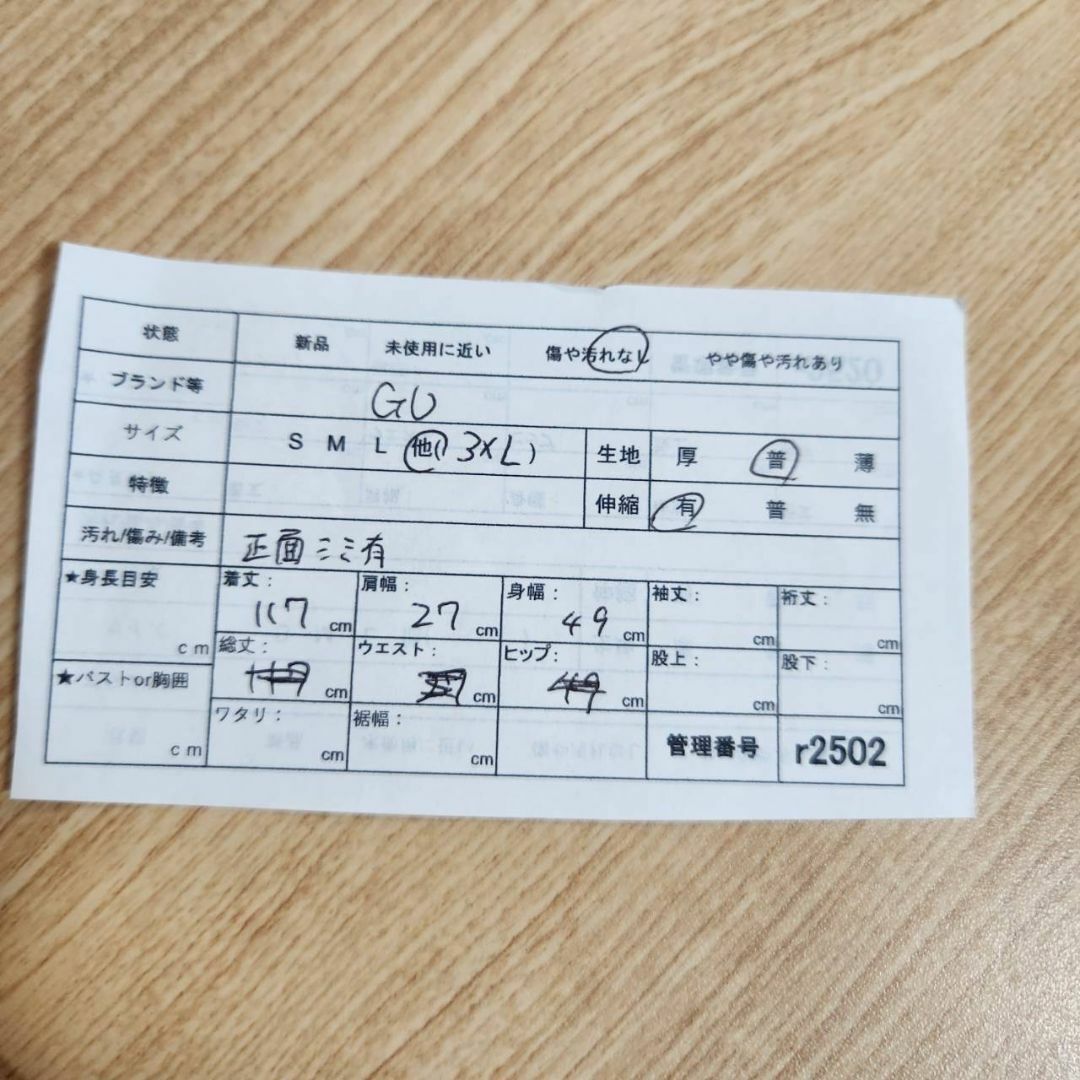 状態 新品 未使用に近い 傷や汚れなし やや傷や汚れあり
ブランド等 GU
サイズ S M L 他( 3XL ) 生地 厚 普 薄
特徴 伸縮 有 普 無
汚れ/傷み/備考 正面ミミ有
★身長目安 cm 着丈: 117 cm 肩幅: 27 cm 身幅: 49 cm 袖丈: cm 裄丈: cm
総丈: 117 cm ウエスト: cm ヒップ: 49 cm 股上: cm 股下: cm
★バストor胸囲 cm ワタリ: cm 裾幅: cm 管理番号 r2502